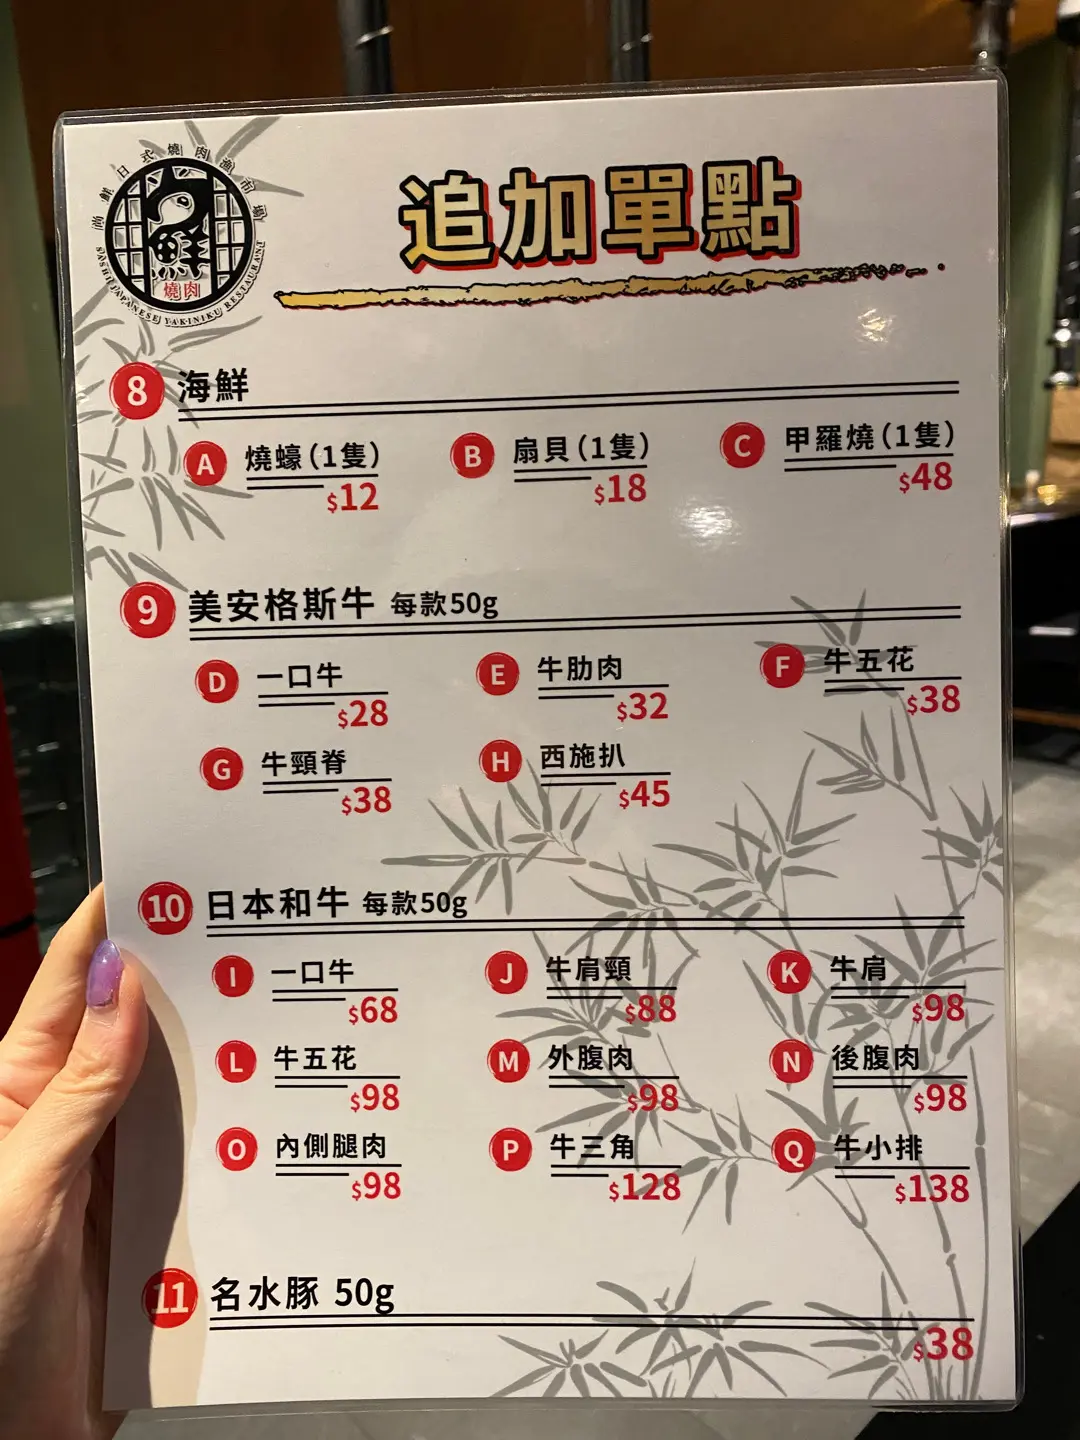 尚鮮日式燒肉漁市場
鮮
燒肉
SASHI JAPANESE YAKINIKU RESTAURANT
追加單點
8 海鮮
A 燒蠔(1隻) $12
B 扇貝(1隻) $18
C 甲羅燒(1隻) $48
9 美安格斯牛 每款50g
D 一口牛 $28
E 牛肋肉 $32
F 牛五花 $38
G 牛頸脊 $38
H 西施扒 $45
10 日本和牛 每款50g
I 一口牛 $68
J 牛肩頸 $88
K 牛肩 $98
L 牛五花 $98
M 外腹肉 $98
N 後腹肉 $98
O 內側腿肉 $98
P 牛三角 $128
Q 牛小排 $138
11 名水豚 50g $38